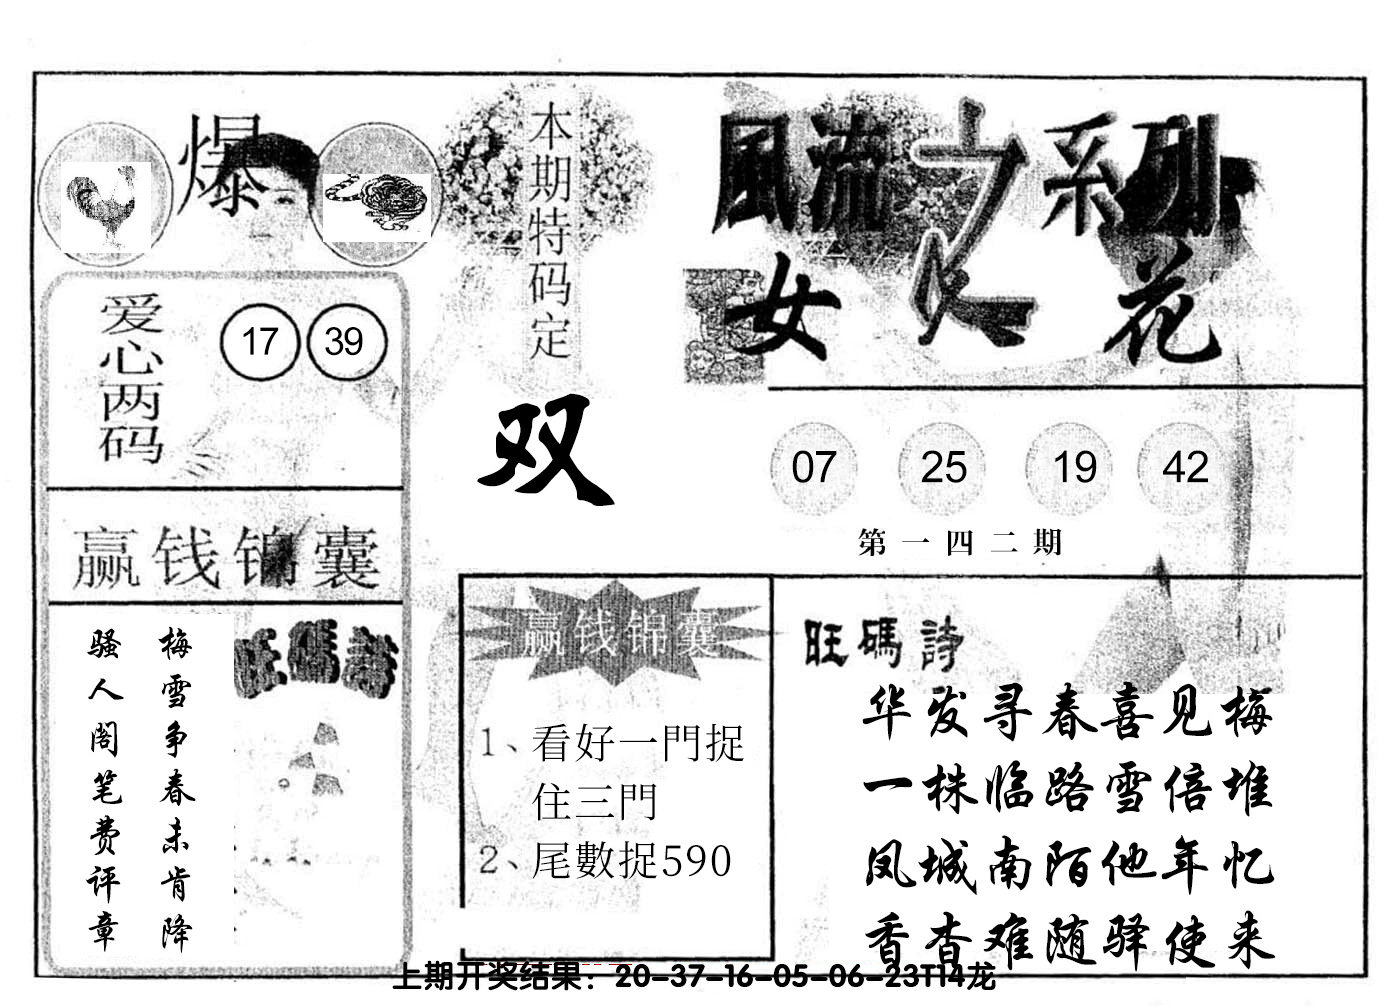 爆
本期特码定
双
風流之系列
女人花
爱心两码
17 39
07 25 19 42
第一四二期
赢钱锦囊
梅雪争春未肯降
骚人阁笔费评章
旺碼詩
赢钱锦囊
1、看好一門捉
住三門
2、尾數捉590
旺碼詩
华发寻春喜见梅
一株临路雪倍堆
凤城南陌他年忆
香杳难随驿使来
上期开奖结果：20-37-16-05-06-23T14龙